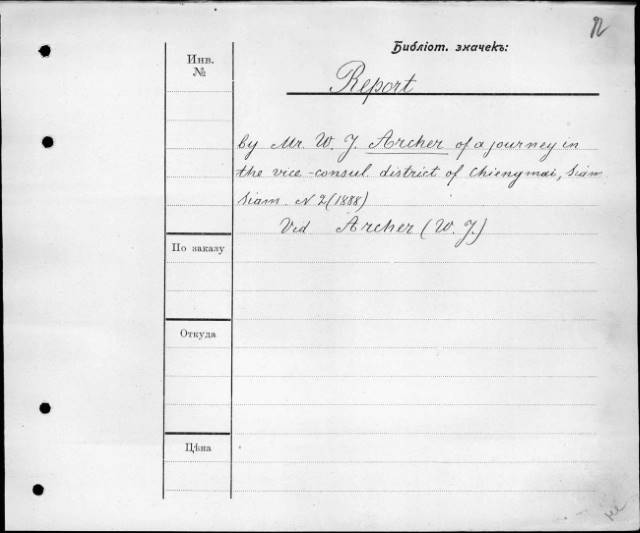 Библіот. значекъ:
Инв.
№
Report
by Mr. W. J. Archer of a journey in
the vice-consul. district of Chiengmai, Siam
Siam N 2 (1888)
Vid Archer (W. J.)
По заказу
Откуда
Цѣна